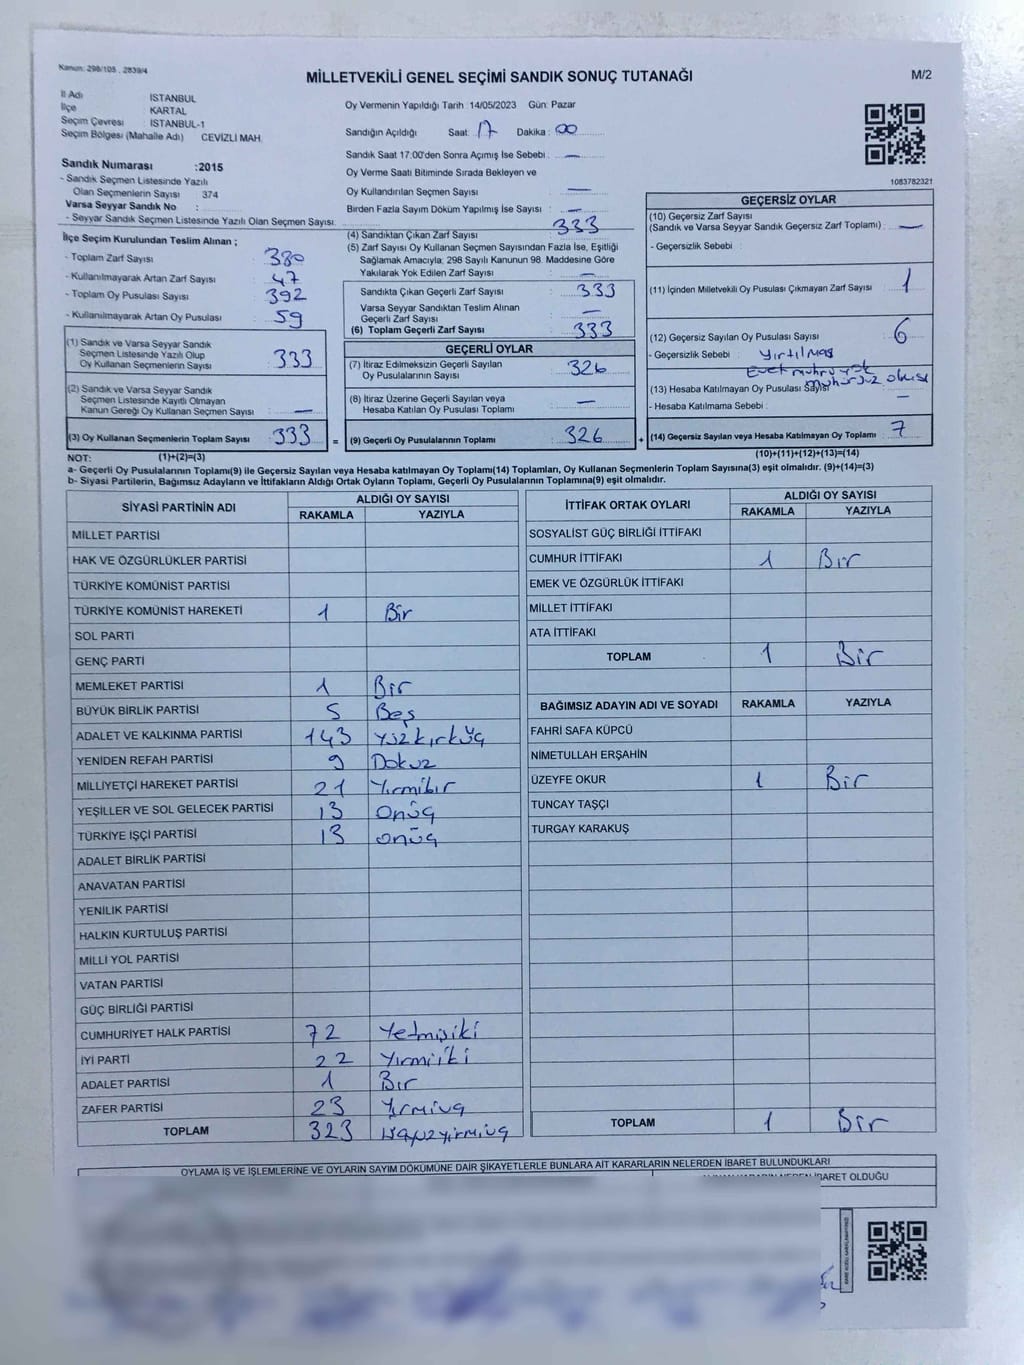 Kanun: 298/105 , 2839/4
MİLLETVEKİLİ GENEL SEÇİMİ SANDIK SONUÇ TUTANAĞI
M/2
İl Adı İSTANBUL
İlçe KARTAL
Seçim Çevresi İSTANBUL-1
Seçim Bölgesi (Mahalle Adı) CEVİZLİ MAH.
Oy Vermenin Yapıldığı Tarih :14/05/2023 Gün: Pazar
Sandığın Açıldığı Saat: 17 Dakika : 00
Sandık Saat 17:00'den Sonra Açımış İse Sebebi : —
Oy Verme Saati Bitiminde Sırada Bekleyen ve
Oy Kullandırılan Seçmen Sayısı —
Birden Fazla Sayım Döküm Yapılmış İse Sayısı : —
Sandık Numarası :2015
- Sandık Seçmen Listesinde Yazılı
Olan Seçmenlerin Sayısı 374
Varsa Seyyar Sandık No :
- Seyyar Sandık Seçmen Listesinde Yazılı Olan Seçmen Sayısı:
İlçe Seçim Kurulundan Teslim Alınan ;
- Toplam Zarf Sayısı 380
- Kullanılmayarak Artan Zarf Sayısı : 47
- Toplam Oy Pusulası Sayısı : 392
- Kullanılmayarak Artan Oy Pusulası : 59
(1) Sandık ve Varsa Seyyar Sandık
Seçmen Listesinde Yazılı Olup
Oy Kullanan Seçmenlerin Sayısı : 333
(2) Sandık ve Varsa Seyyar Sandık
Seçmen Listesinde Kayıtlı Olmayan
Kanun Gereği Oy Kullanan Seçmen Sayısı : —
(3) Oy Kullanan Seçmenlerin Toplam Sayısı : 333
(4) Sandıktan Çıkan Zarf Sayısı 333
(5) Zarf Sayısı Oy Kullanan Seçmen Sayısından Fazla İse, Eşitliği
Sağlamak Amacıyla; 298 Sayılı Kanunun 98. Maddesine Göre
Yakılarak Yok Edilen Zarf Sayısı : —
Sandıkta Çıkan Geçerli Zarf Sayısı : 333
Varsa Seyyar Sandıktan Teslim Alınan
Geçerli Zarf Sayısı : —
(6) Toplam Geçerli Zarf Sayısı : 333
GEÇERLİ OYLAR
(7) İtiraz Edilmeksizin Geçerli Sayılan
Oy Pusulalarının Sayısı : 326
(8) İtiraz Üzerine Geçerli Sayılan veya
Hesaba Katılan Oy Pusulası Toplamı : —
= (9) Geçerli Oy Pusulalarının Toplamı : 326
1083782321
GEÇERSİZ OYLAR
(10) Geçersiz Zarf Sayısı
(Sandık ve Varsa Seyyar Sandık Geçersiz Zarf Toplamı) : —
- Geçersizlik Sebebi :
(11) İçinden Milletvekili Oy Pusulası Çıkmayan Zarf Sayısı : 1
(12) Geçersiz Sayılan Oy Pusulası Sayısı : 6
- Geçersizlik Sebebi : Yırtılmış
Evet muhru yok
(13) Hesaba Katılmayan Oy Pusulası Sayısı muhursuz olması —
- Hesaba Katılmama Sebebi :
+ (14) Geçersiz Sayılan veya Hesaba Katılmayan Oy Toplamı : 7
NOT: (1)+(2)=(3) (10)+(11)+(12)+(13)=(14)
a- Geçerli Oy Pusulalarının Toplamı(9) ile Geçersiz Sayılan veya Hesaba katılmayan Oy Toplamı(14) Toplamları, Oy Kullanan Seçmenlerin Toplam Sayısına(3) eşit olmalıdır. (9)+(14)=(3)
b- Siyasi Partilerin, Bağımsız Adayların ve İttifakların Aldığı Ortak Oyların Toplamı, Geçerli Oy Pusulalarının Toplamına(9) eşit olmalıdır.
SİYASİ PARTİNİN ADI ALDIĞI OY SAYISI
RAKAMLA YAZIYLA
MİLLET PARTİSİ
HAK VE ÖZGÜRLÜKLER PARTİSİ
TÜRKİYE KOMÜNİST PARTİSİ
TÜRKİYE KOMÜNİST HAREKETİ 1 Bir
SOL PARTİ
GENÇ PARTİ
MEMLEKET PARTİSİ 1 Bir
BÜYÜK BİRLİK PARTİSİ 5 Beş
ADALET VE KALKINMA PARTİSİ 143 yüzkırküç
YENİDEN REFAH PARTİSİ 9 Dokuz
MİLLİYETÇİ HAREKET PARTİSİ 21 Yirmibir
YEŞİLLER VE SOL GELECEK PARTİSİ 13 Onüç
TÜRKİYE İŞÇİ PARTİSİ 13 onüç
ADALET BİRLİK PARTİSİ
ANAVATAN PARTİSİ
YENİLİK PARTİSİ
HALKIN KURTULUŞ PARTİSİ
MİLLİ YOL PARTİSİ
VATAN PARTİSİ
GÜÇ BİRLİĞİ PARTİSİ
CUMHURİYET HALK PARTİSİ 72 Yetmişiki
İYİ PARTİ 22 Yirmiiki
ADALET PARTİSİ 1 Bir
ZAFER PARTİSİ 23 Yirmiüç
TOPLAM 323 üçyüzyirmiüç
İTTİFAK ORTAK OYLARI ALDIĞI OY SAYISI
RAKAMLA YAZIYLA
SOSYALİST GÜÇ BİRLİĞİ İTTİFAKI
CUMHUR İTTİFAKI 1 Bir
EMEK VE ÖZGÜRLÜK İTTİFAKI
MİLLET İTTİFAKI
ATA İTTİFAKI
TOPLAM 1 Bir
BAĞIMSIZ ADAYIN ADI VE SOYADI RAKAMLA YAZIYLA
FAHRİ SAFA KÜPCÜ
NİMETULLAH ERŞAHİN
ÜZEYFE OKUR 1 Bir
TUNCAY TAŞÇI
TURGAY KARAKUŞ
TOPLAM 1 Bir
OYLAMA İŞ VE İŞLEMLERİNE VE OYLARIN SAYIM DÖKÜMÜNE DAİR ŞİKAYETLERLE BUNLARA AİT KARARLARIN NELERDEN İBARET BULUNDUKLARI
İBARET OLDUĞU